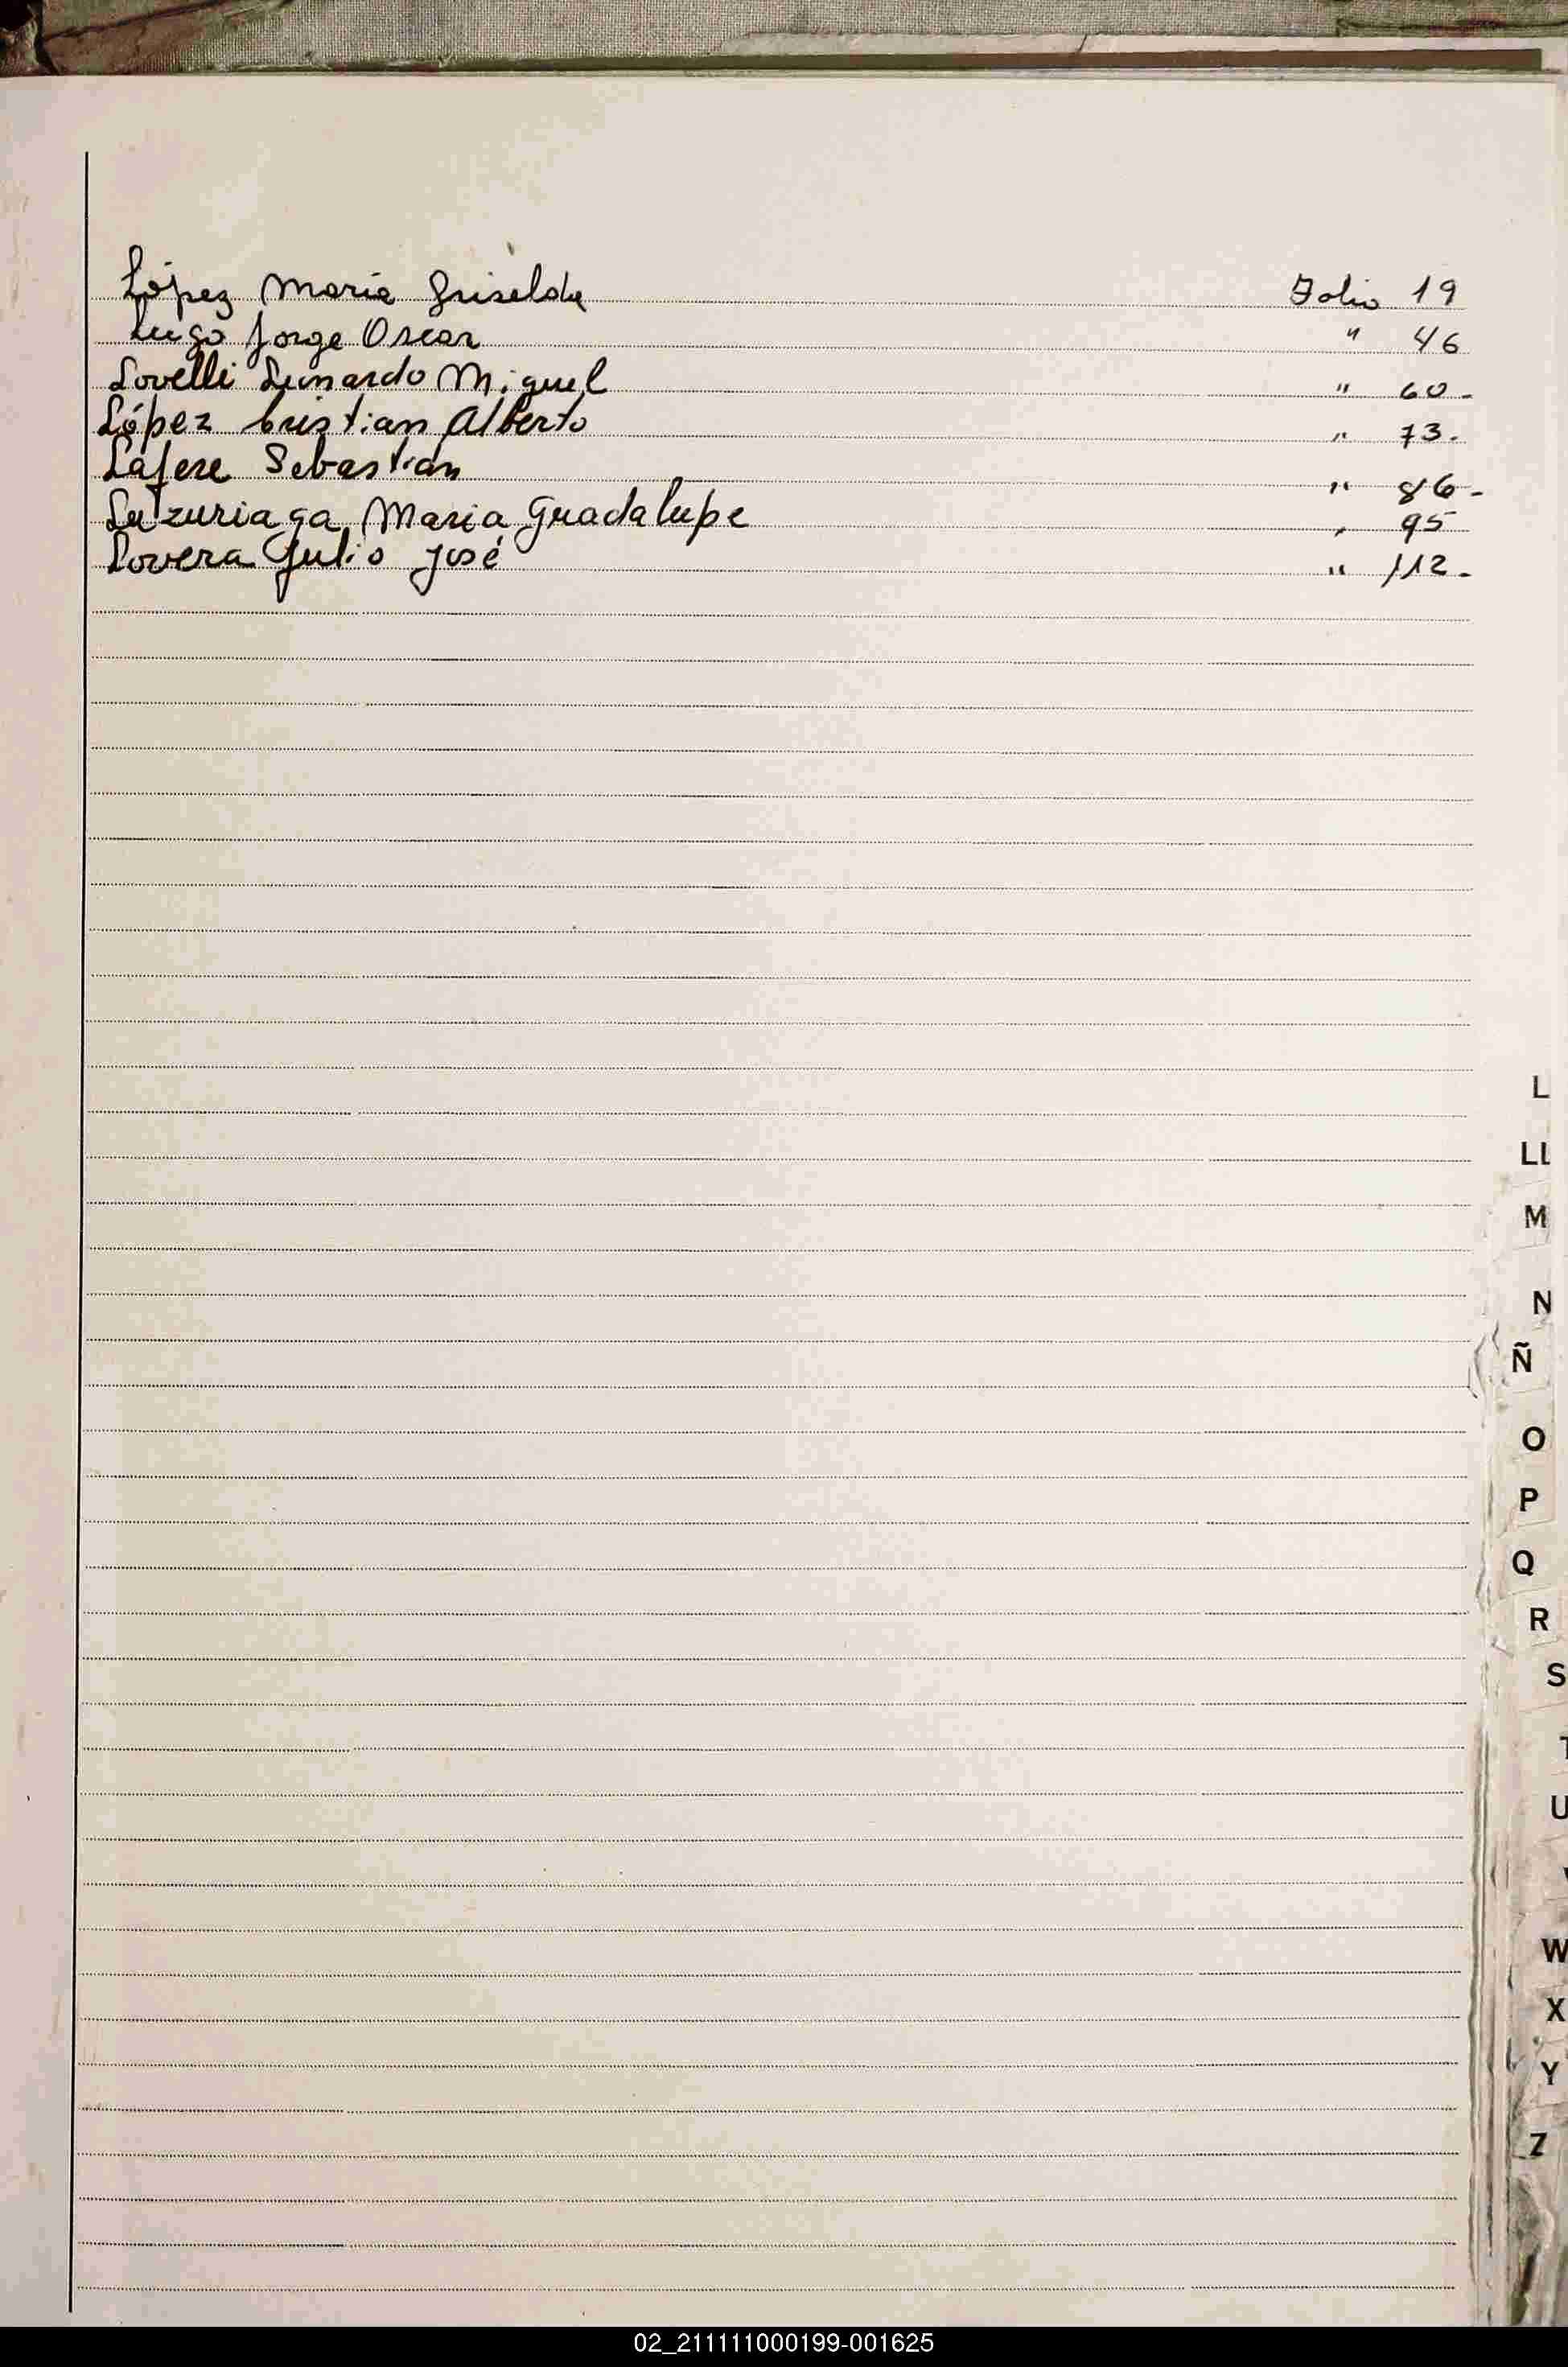 López María Griselda Folio 19
Lugo Jorge Oscar " 46
Lovelli Leonardo Miguel " 60-
López Cristian Alberto " 73-
Lafere Sebastián " 86-
Luzuriaga María Guadalupe " 95
Lovera Julio José " 112-
L
LL
M
N
Ñ
O
P
Q
R
S
T
U
V
W
X
Y
Z
02_211111000199-001625